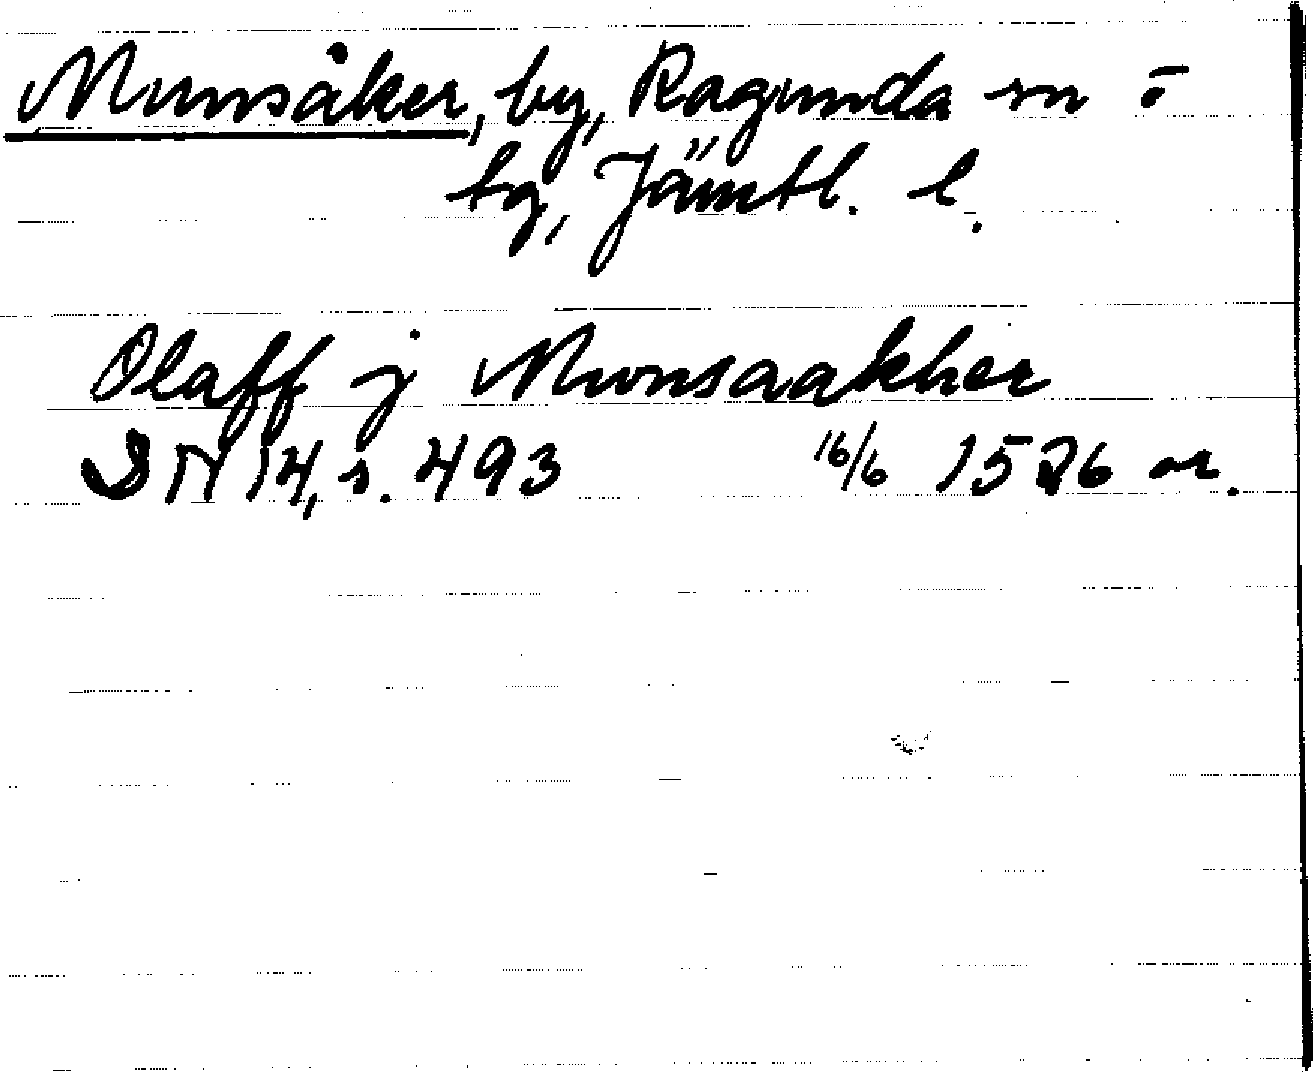 Munsåker, by, Ragunda sn o
tg, Jämtl. l.
Olaff j Munsaakher
DN 14, s. 493 16/6 1526 or.